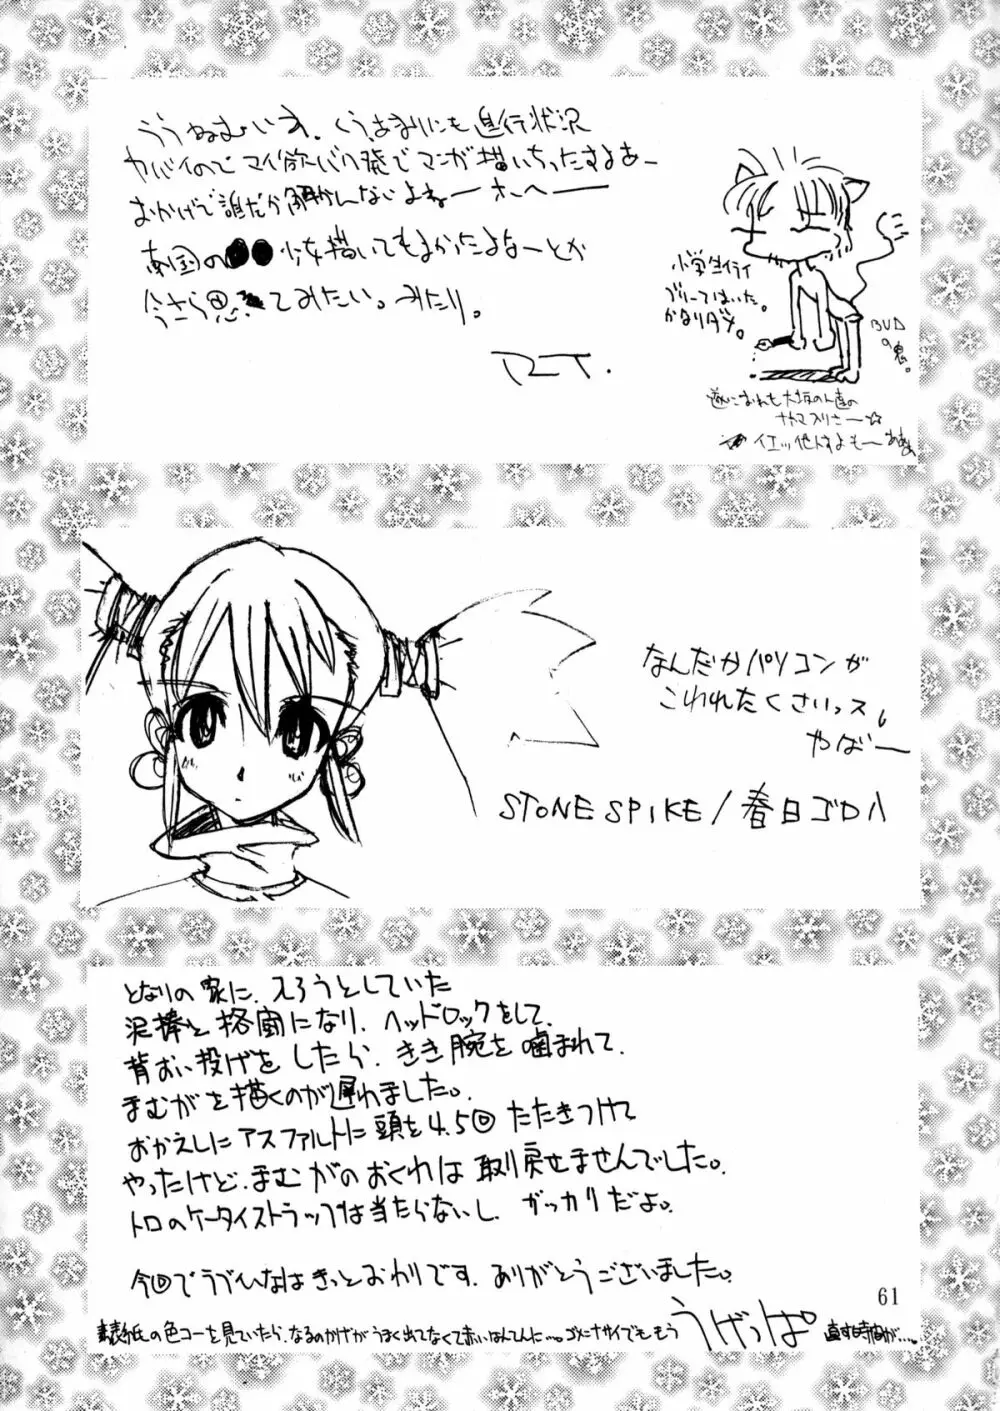 ううねむいす、くうあまりにも進行状況
ヤバイので マイ欲バク発でマンガ描いちったすよあー
おかげで誰だか解かんないよねーホヘー
南国の●●少女描いてもよかったよなーとか
今さら思ってみたい。みたり。
RT.
小学生イライ
プリーツはいた。
かなりダメ。
BUD
の鬼。
遂におれも大坂の人達の
ナカマフリさー☆
イエッ他人すよもー
なんだかパソコンが
こわれたくさいっス。
やばー
STONE SPIKE/春日ゴロ八
となりの家に、入ろうとしていた
泥棒と格闘になり、ヘッドロックをして、
背おい投げをしたら、きき腕を噛まれて、
まむがを描くのが遅れました。
おかえしにアスファルトに頭を4.5回たたきつけて
やったけど、まむがのおくれは取り戻せませんでした。
トロのケータイストラップは当たらないし、ガッカリだよ。
今回でラブひなはきっとおわりです。ありがとうございました。
61
裏表紙の色コーを見ていたら、なるのかげがうまく出てなくて赤いはんてんに…。ゴメンナサイでももう 直す時間が…。
うげっぱ